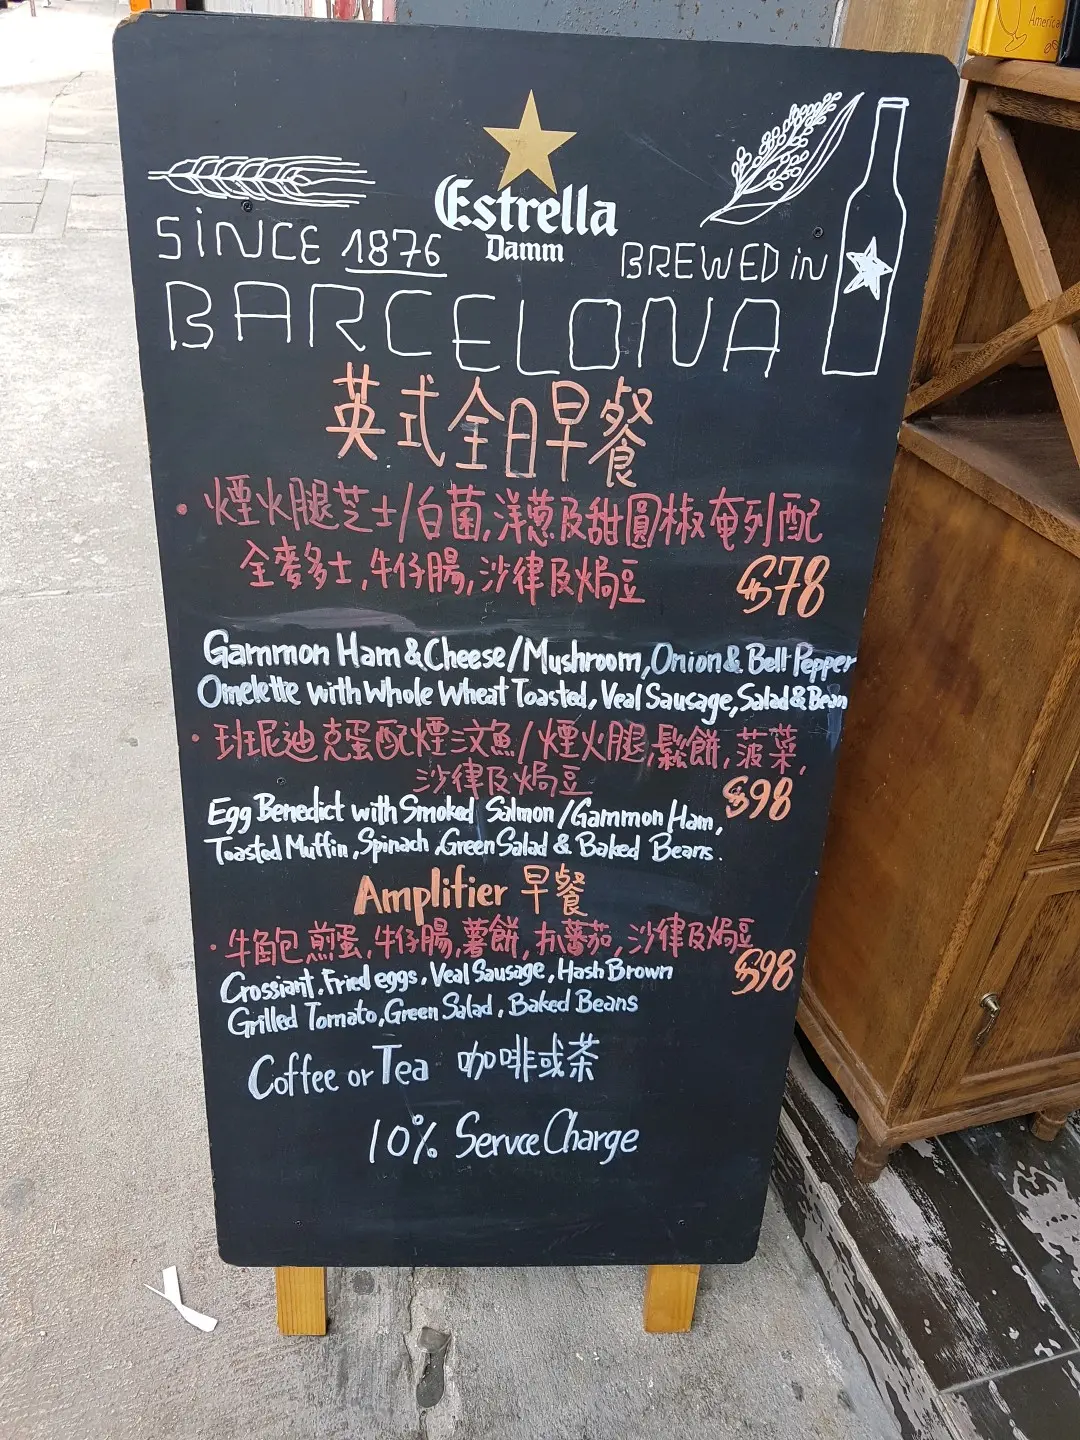 America
Estrella
Damm
SINCE 1876
BREWED iN
BARCELONA
英式全日早餐
・煙火腿芝士/白菌,洋蔥及甜圓椒奄列配
全麥多士,牛仔腸,沙律及焗豆 $78
Gammon Ham & Cheese/Mushroom, Onion & Bell Pepper
Omelette with Whole Wheat Toasted, Veal Sausage, Salad & Bean
・班尼迪克蛋配煙三文魚/煙火腿,鬆餅,菠菜,
沙律及焗豆 $98
Egg Benedict with Smoked Salmon/Gammon Ham,
Toasted Muffin, Spinach, Green Salad & Baked Beans.
Amplifier 早餐
・牛角包,煎蛋,牛仔腸,薯餅,扒蕃茄,沙律及焗豆
$98
Crossiant, Fried eggs, Veal Sausage, Hash Brown
Grilled Tomato, Green Salad, Baked Beans
Coffee or Tea 咖啡或茶
10% Servce Charge